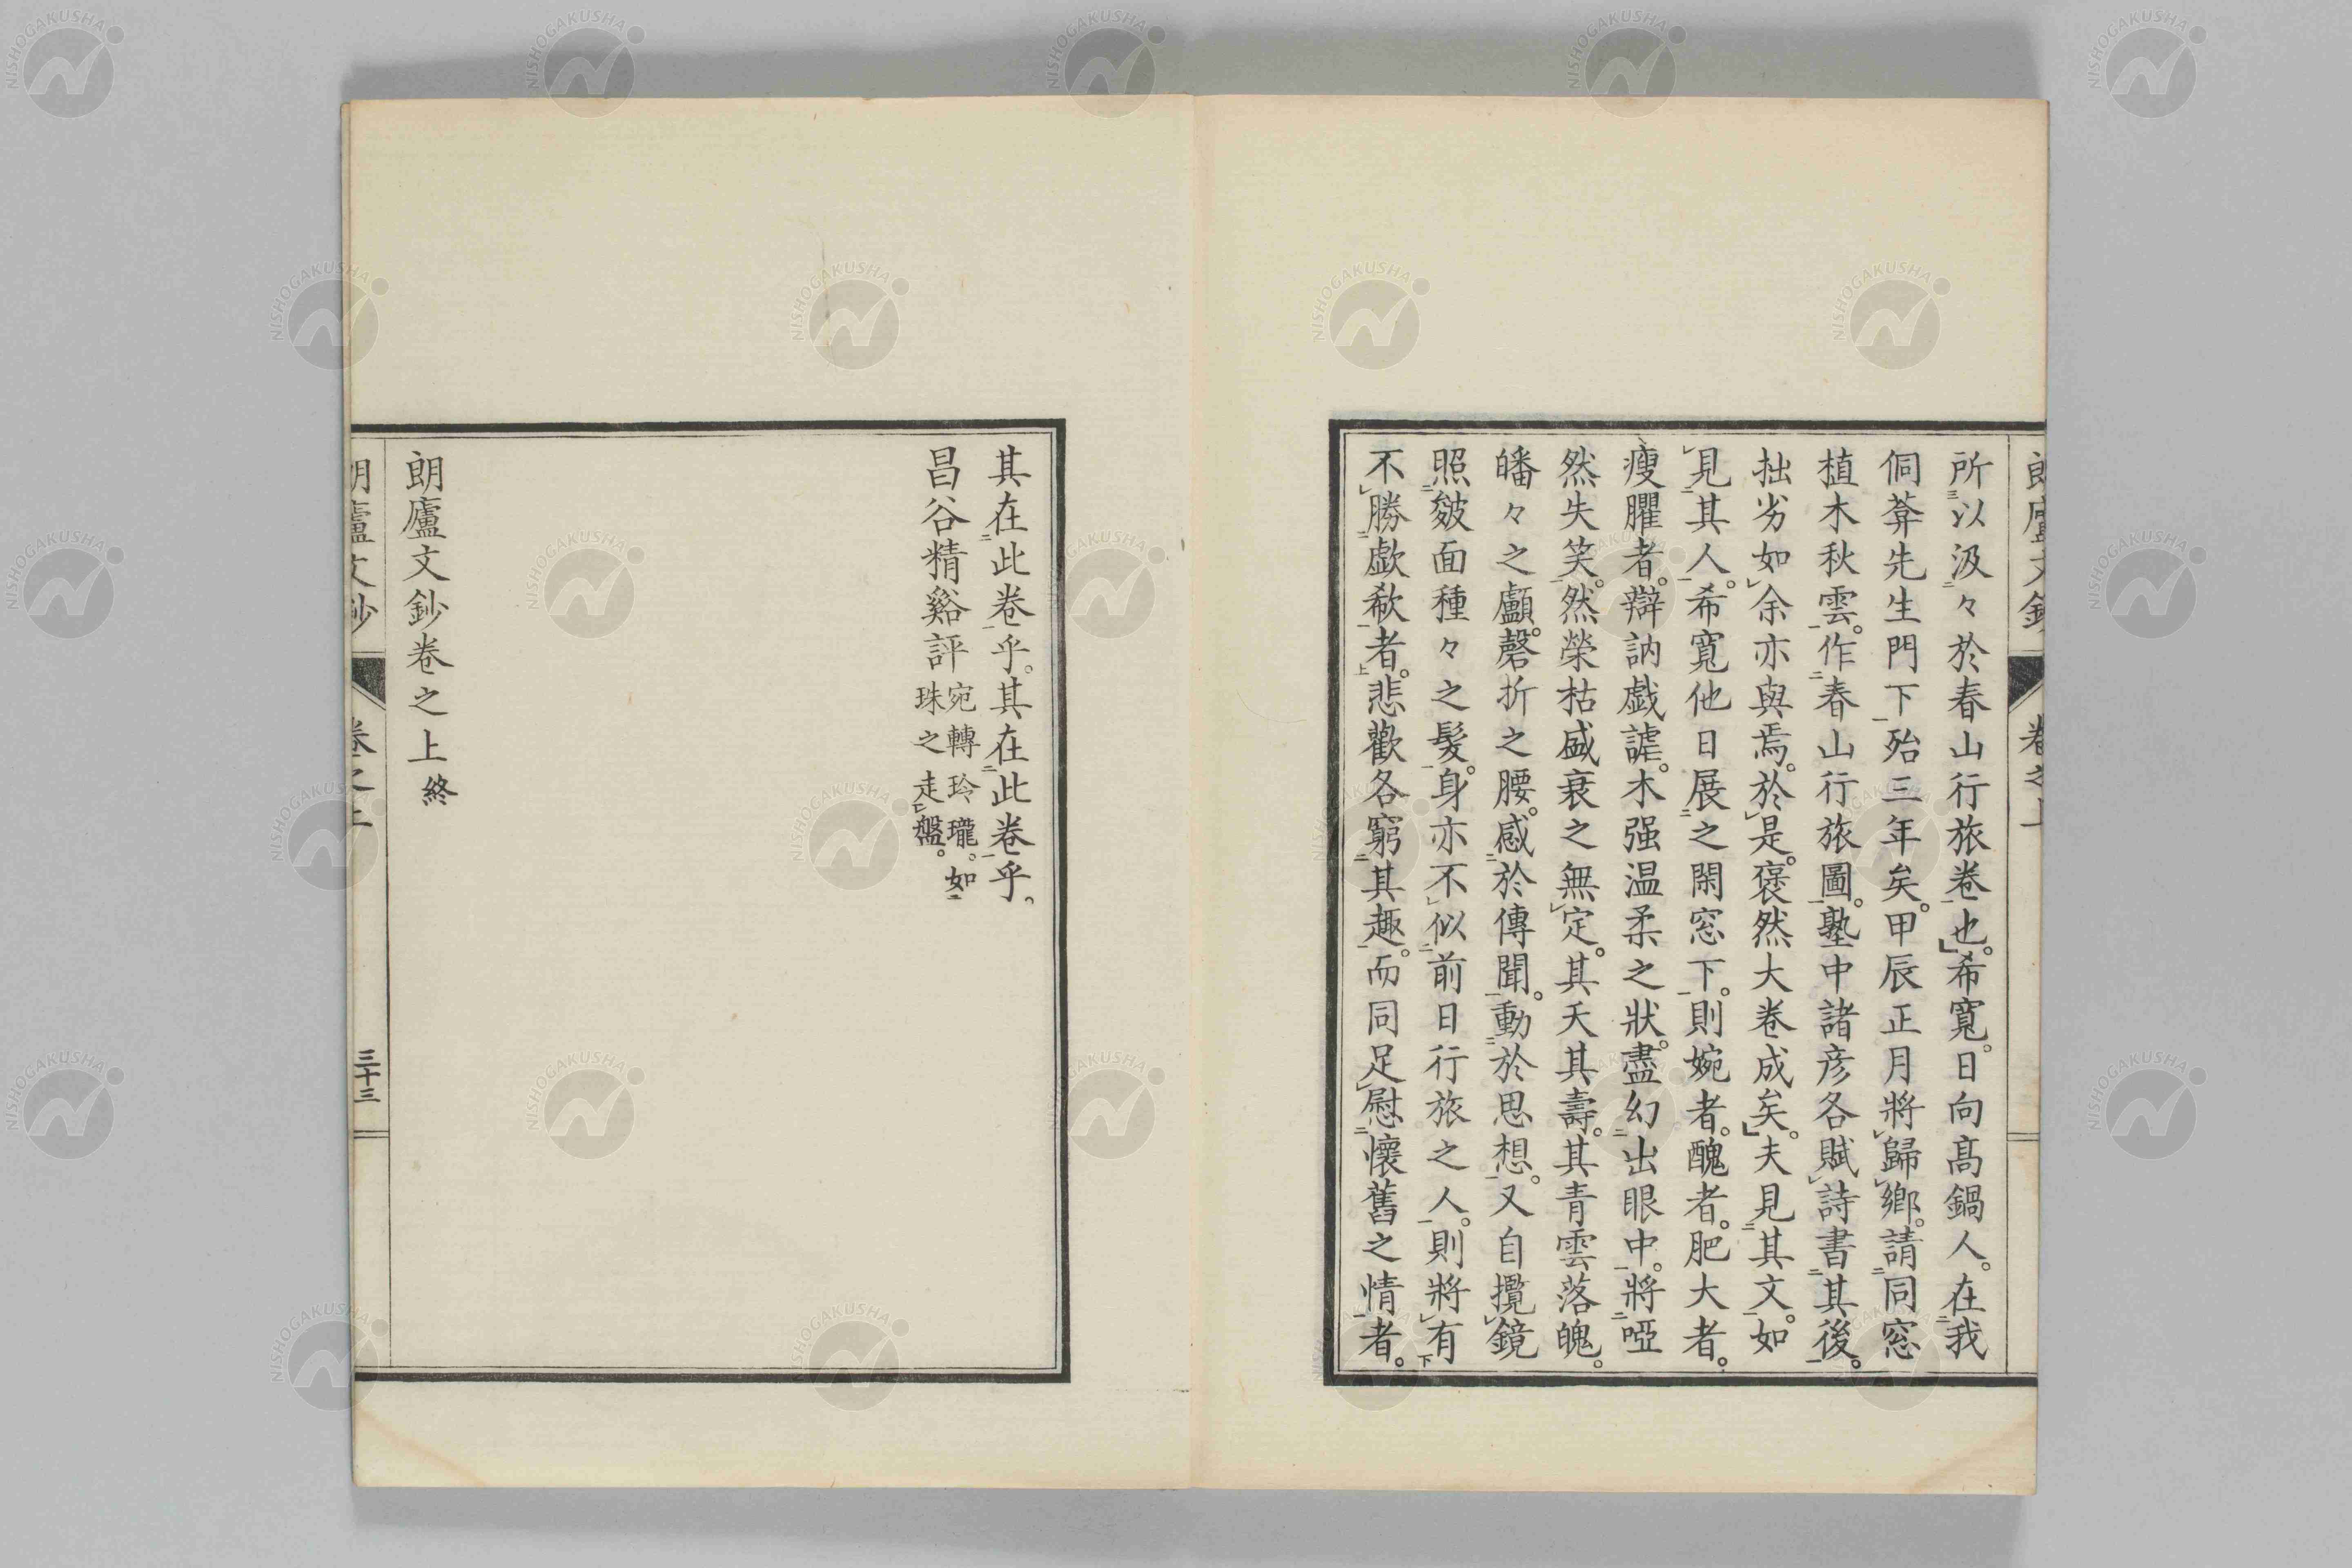 所以汲々於春山行旅卷也。希寬。日向高鍋人。在我
侗菴先生門下殆三年矣。甲辰正月將歸鄉。請同窓
植木秋雲。作春山行旅圖。塾中諸彥各賦詩書其後。
拙劣如余亦與焉。於是。褒然大卷成矣。夫見其文。如
見其人。希寬他日展之閑窓下。則婉者。醜者。肥大者。
瘦臞者。辯訥戲謔。木强温柔之狀。盡幻出眼中。將啞
然失笑。然榮枯盛衰之無定。其夭其壽。其青雲落魄。
皤々之顱。磬折之腰。感於傳聞。動於思想。又自攬鏡
照皴面種々之髮。身亦不似前日行旅之人。則將有
不勝歔欷者。悲歡各窮其趣。而同足慰懷舊之情者。
其在此卷乎。其在此卷乎。
昌谷精谿評 宛轉玲瓏。如
珠之走盤。
朗廬文鈔卷之上終
三十三
NISHOGAKUSHA